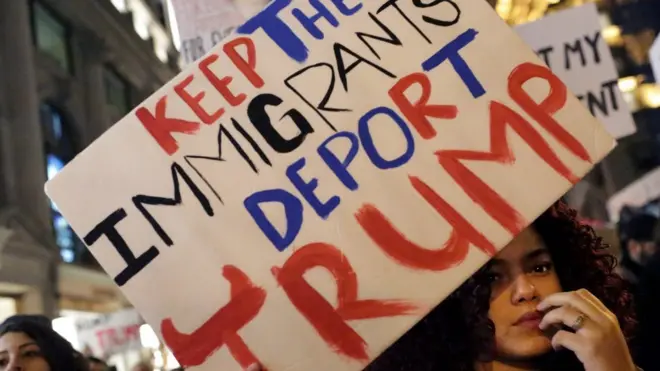 KEEP THE
IMMIGRANTS
DEPORT
TRUMP
T MY
ENT
TRUM